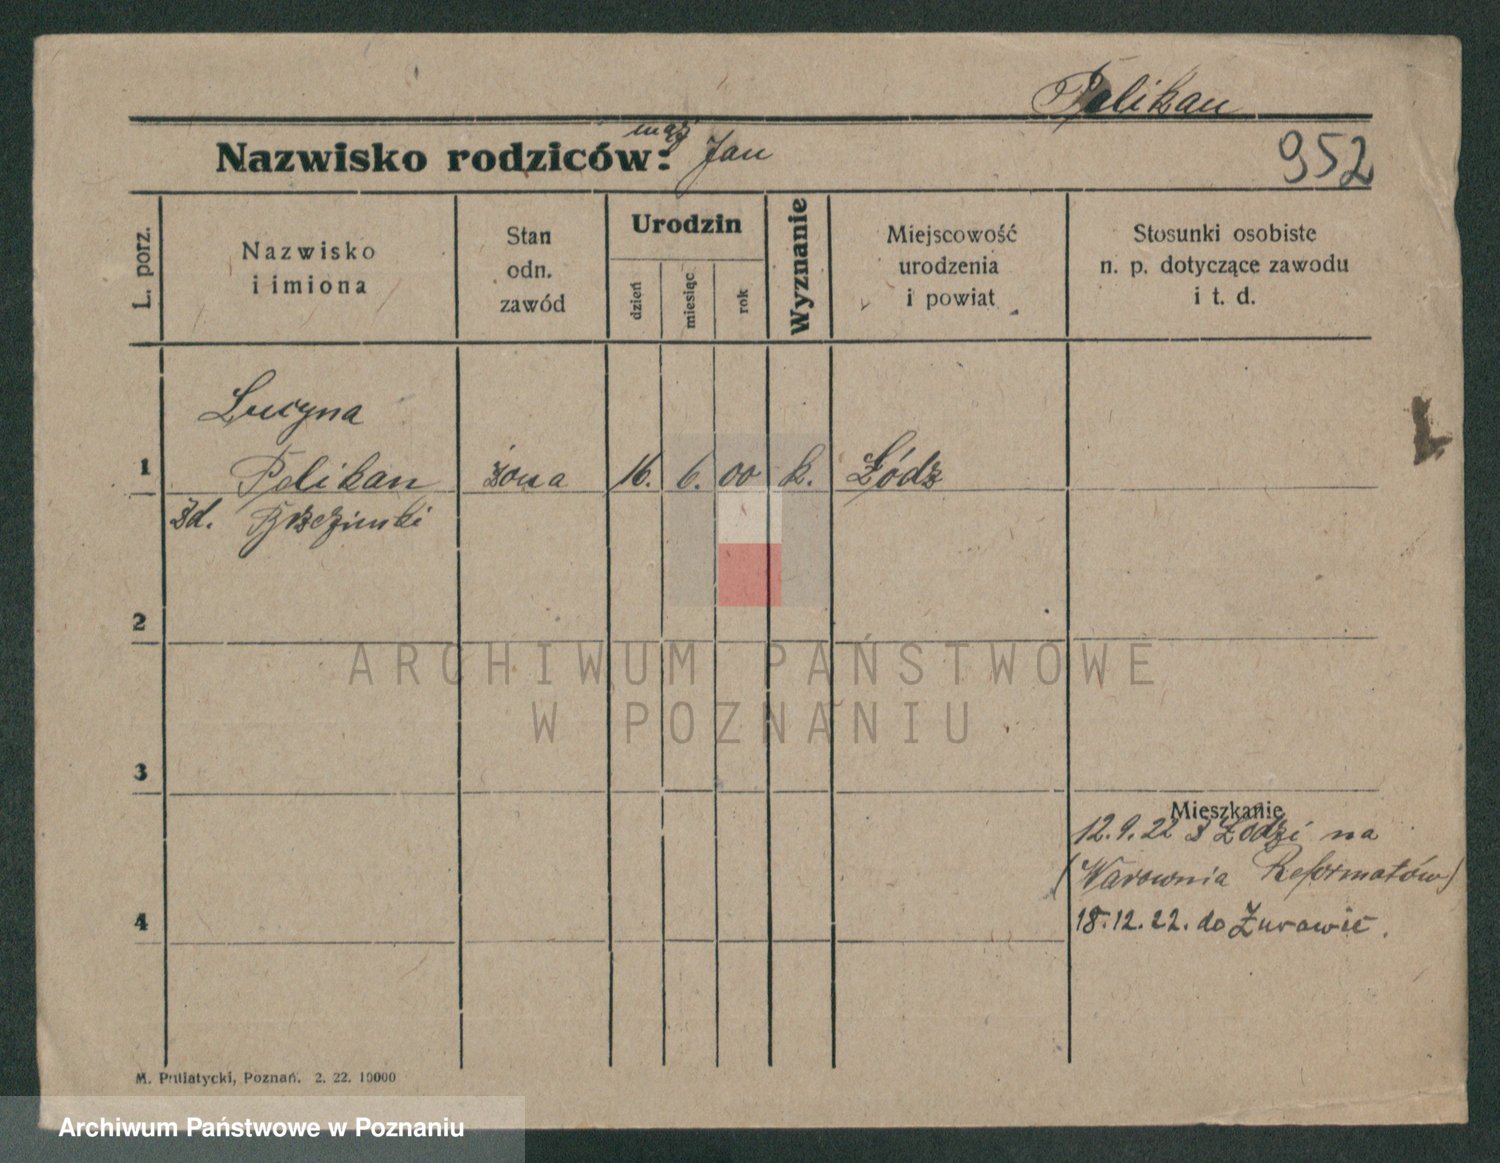 Pelikan
mąż
Nazwisko rodziców: Jan
952
L. porz.
Nazwisko
i imiona
Stan
odn.
zawód
Urodzin
dzień
miesiąc
rok
Wyznanie
Miejscowość
urodzenia
i powiat
Stosunki osobiste
n. p. dotyczące zawodu
i t. d.
Lucyna
1 Pelikan żona 16. 6. 00 k. Łódz
zd.
2
3
4
Mieszkanie
12.9.22 z Łodzi na
(Warownia Reformatów)
18.12.22. do Żurawic.
M. Putiatycki, Poznań. 2. 22. 10000
ARCHIWUM PAŃSTWOWE
W POZNANIU
Archiwum Państwowe w Poznaniu